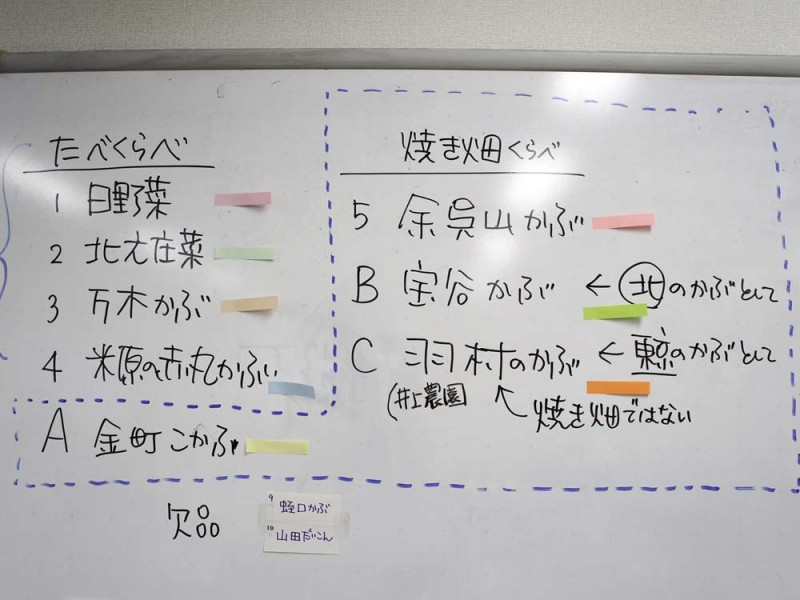 たべくらべ
1 日野菜
2 北之庄菜
3 万木かぶ
4 米原の赤丸かぶ
A 金町こかぶ
焼き畑くらべ
5 余呉山かぶ
B 宝谷かぶ ← 北のかぶとして
C 羽村のかぶ ← 東京のかぶとして
(井上農園
焼き畑ではない
欠品
9 蛭口かぶ
10 山田だいこん